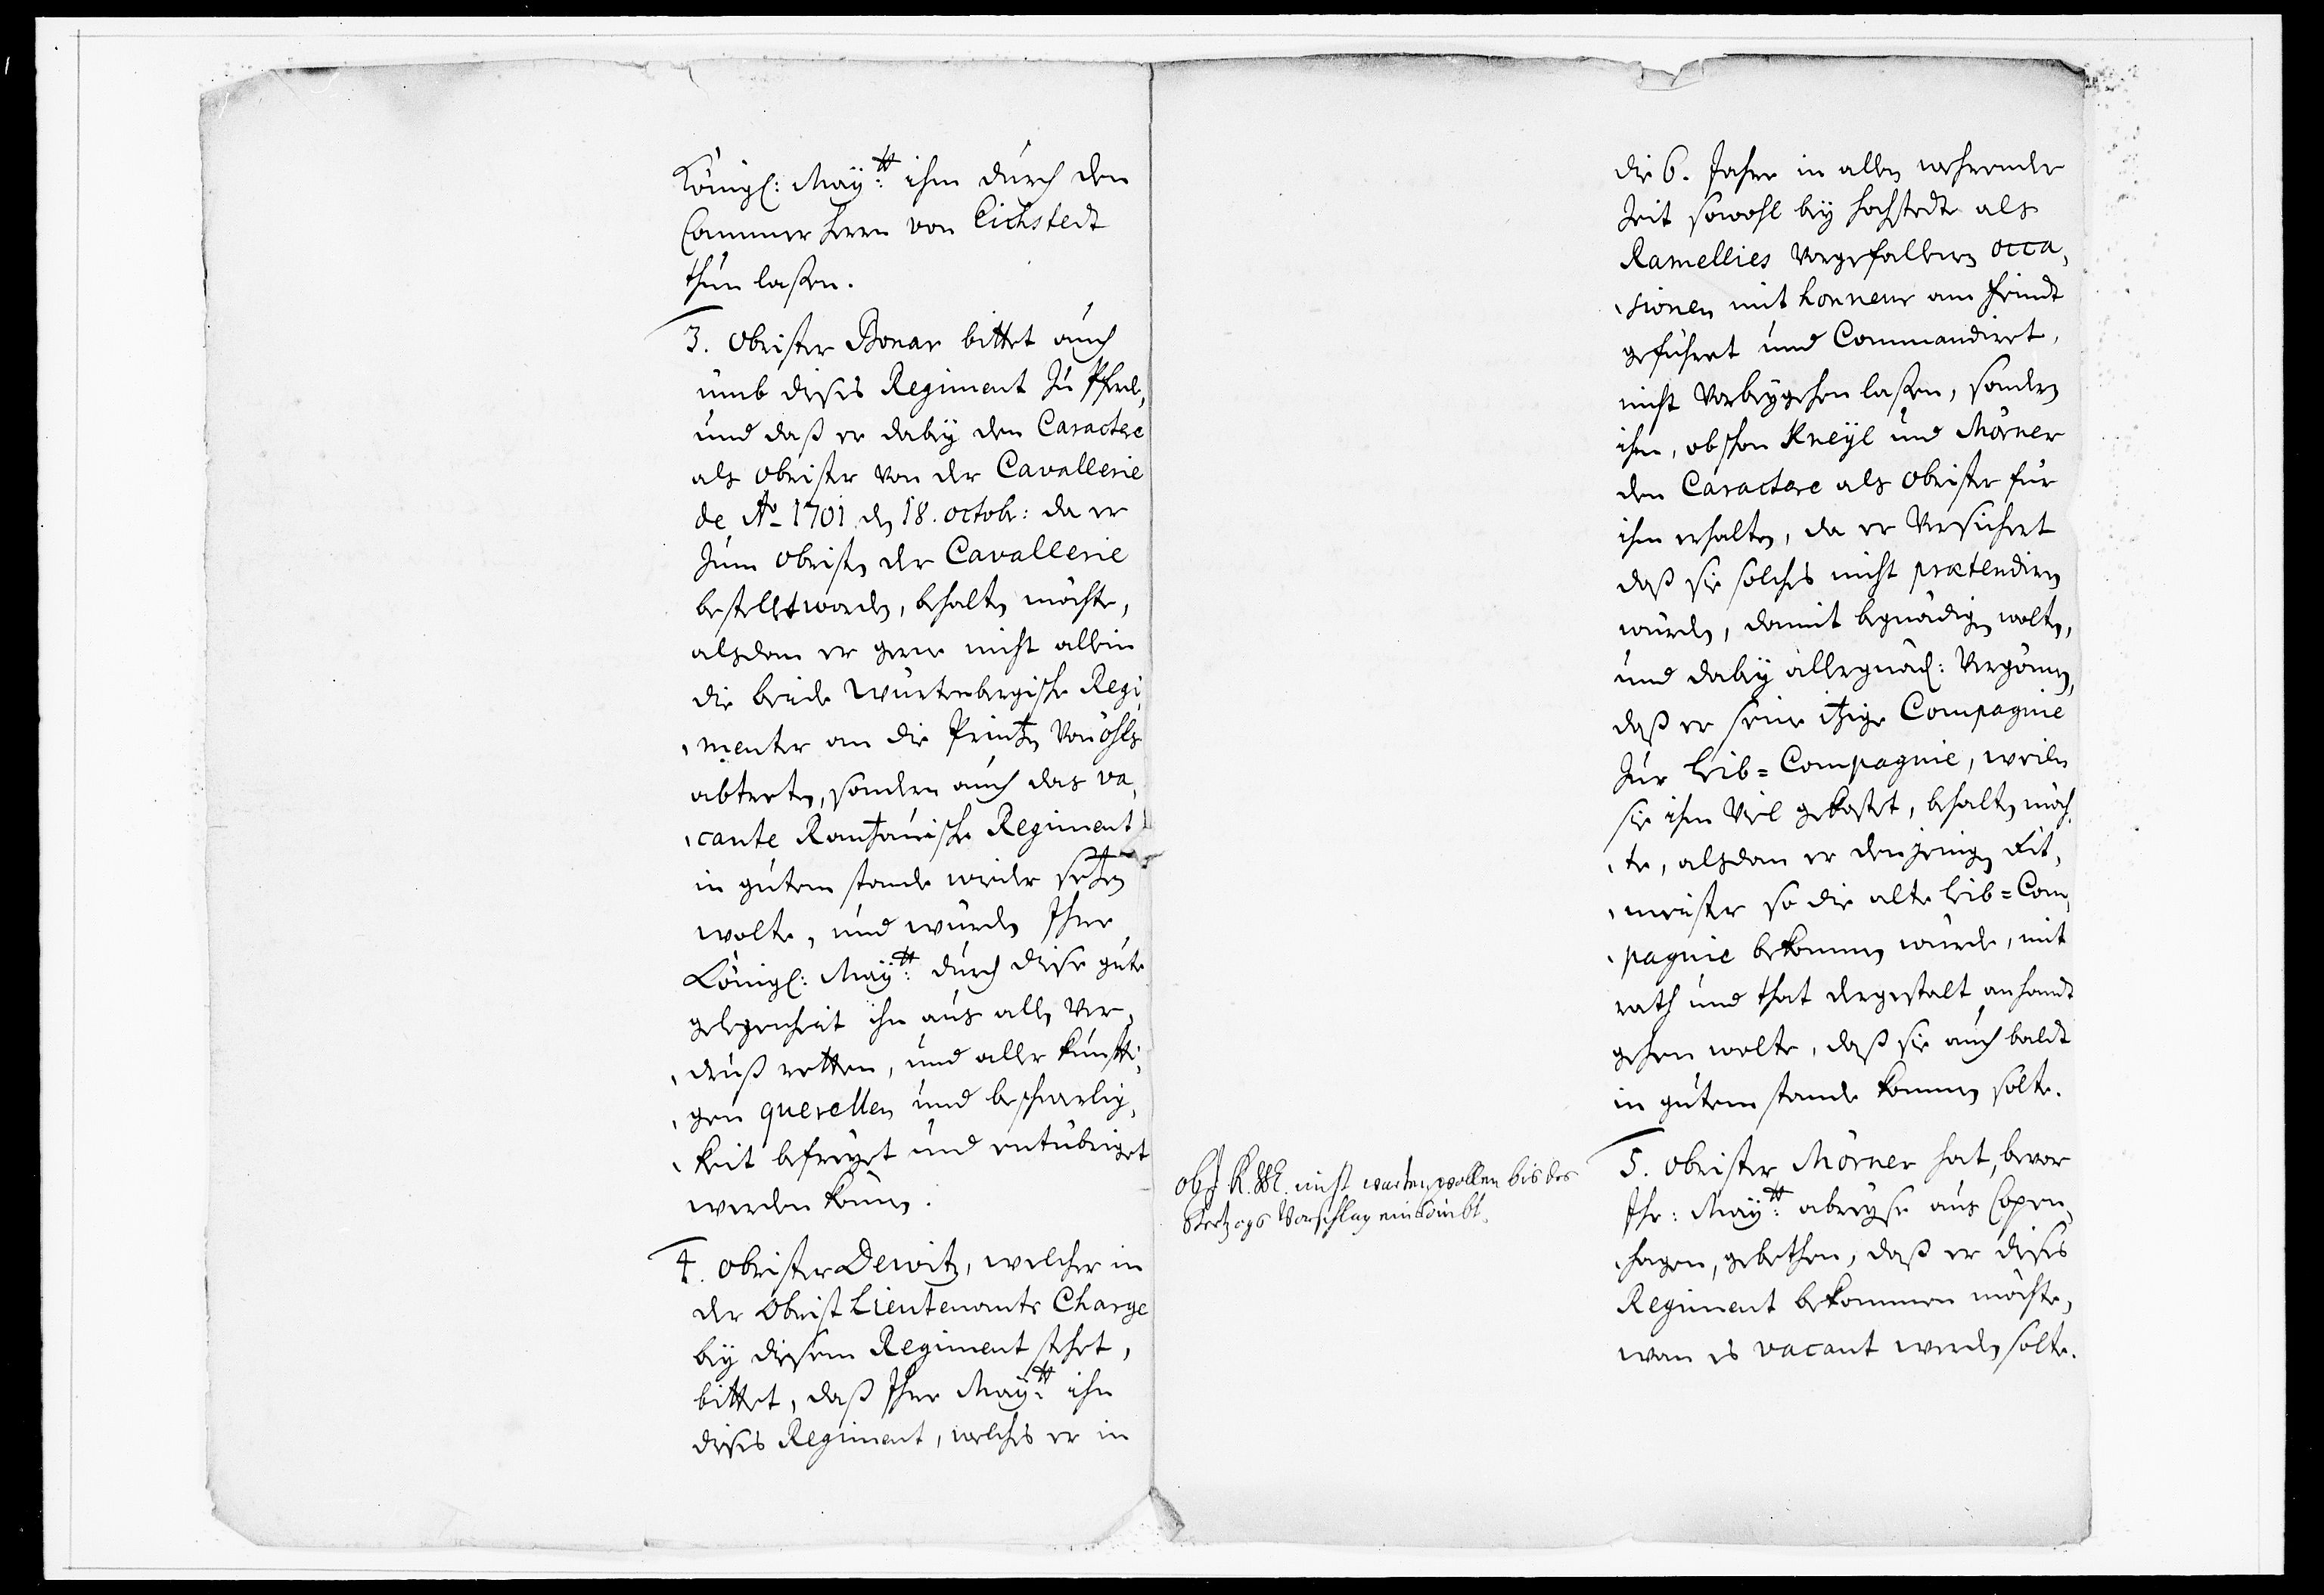 Königl: May:tt ihm durch den
Cammer herrn von Eichstedt
thun laßen.
3. Obrister Bonar bittet auch
umb dieses Regiment zu Pferd,
und daß er dabey den Caractere
als Obrister von der Cavallerie
de Ao 1701 den 18. octobr: da er
zum Obristen der Cavallerie
bestellt worden, behalten möchte,
alsdan er gerne nicht allein
die beide Würtenbergische Regi,
menter an die Printzen von Öhls
abtreten, sondern auch das va,
cante Rantzauische Regiment
in gutem stande wieder setzen
wolte, und würden Ihre
Königl: May:tt durch diese gute
gelegenheit ihn aus allen Ver,
druß retten, und aller künffti,
gen querellen und beschwerlig,
keit befreyet und entübriget
werden können.
4. Obrister Dewitz, welcher in
der Obrist Lieutenants Charge
bey diesem Regiment stehet,
bittet, daß Ihre May:tt ihn
dieses Regiment, welches er in
die 6. Jahre in allen wehrender
Zeit sowohl bey Hochstedt als
Ramellies vorgefallenen occa,
sionen mit honneur am Feindt
geführet und Commandiret,
nicht vorbeygehen laßen, sondern
ihn, obschon Kneyl und Mörner
den Caractere als Obrister für
ihm erhalten, da er versichert
daß sie solches nicht prætendiren
würden, damit begnädigen wolten,
und dabey allergnäd: vergönnen,
daß er seine itzige Compagnie
zur Leib=Compagnie, weilen
sie ihm viel gekostet, behalten möch,
te, alsdan er denjenigen Rit,
meister so die alte Leib=Com,
pagnie bekommen würde, mit
rath und that dergestalt anhandt
gehen wolte, daß sie auch baldt
in gutem stande kommen solte.
ob J. K. M. nicht warten wollen bis des
Hertzogs Vorschlag einkombt.
5. Obrister Mörner hat, bevor
Ihr: May:tt abreyse aus Copen,
hagen, gebethen, daß er dieses
Regiment bekommen möchte,
wan es vacant werden solte.